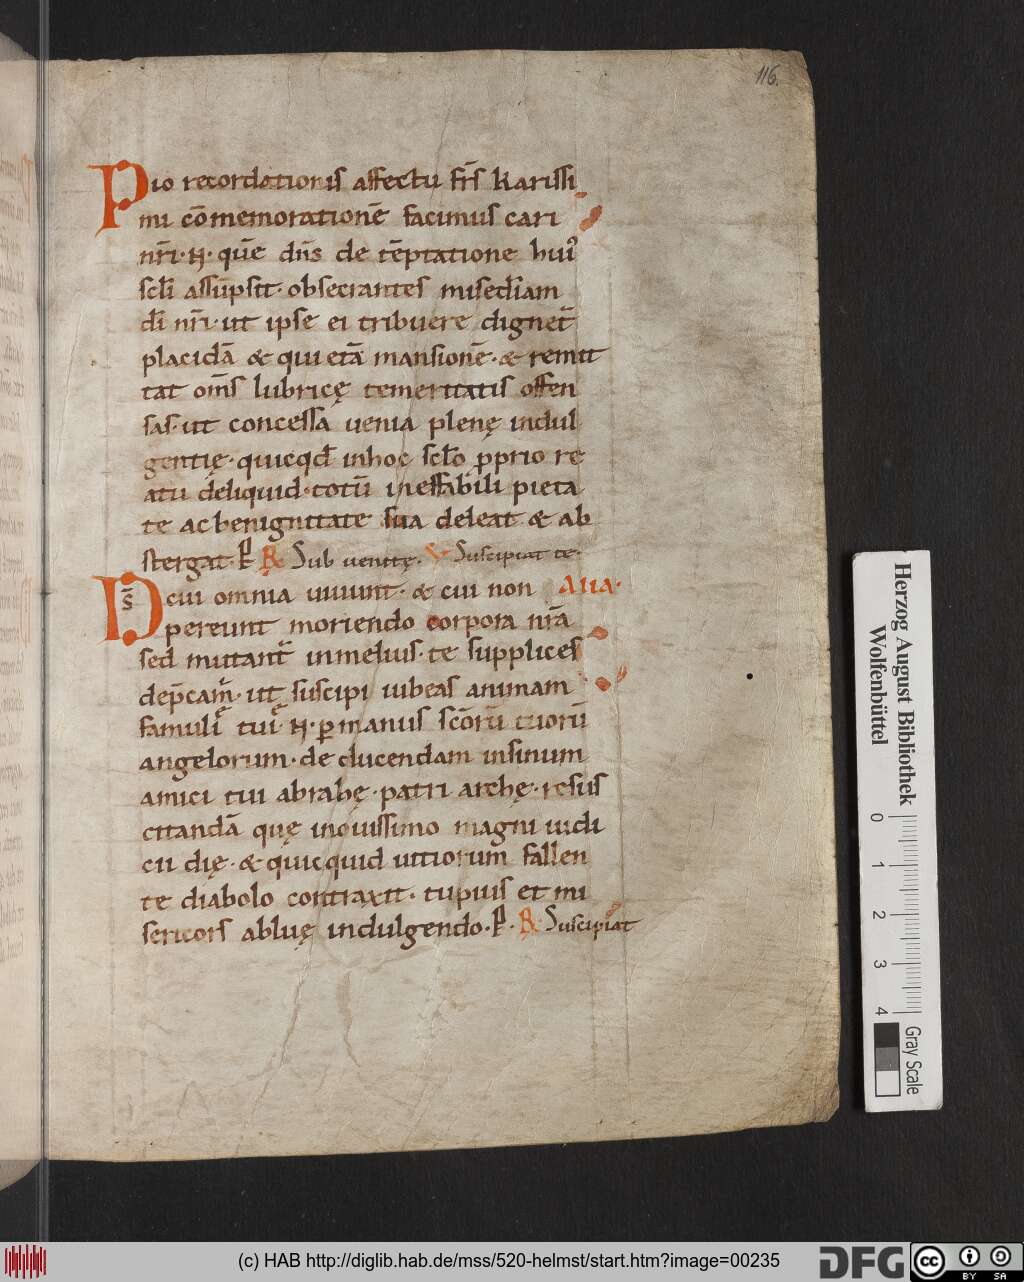 116.
Pio recordationis affectu fr̄s karissi
mi cōmemorationē facimus cari
nr̄i · N · quē dn̄s de tēptatione hui᷒
sc̄li assūpsit · obsecrantes mis̄ediam
dī nr̄i · ut ipse ei tribuere dignet᷑
placidā & quietā mansionē · & remit
tat om̄s lubricę temeritatis offen
sas · ut concessa uenia plenę indul
gentię · quicqd̄ inhoc sc̄lo ꝓprio re
atu deliquid · totū ineffabili pieta
te ac benignitate sua deleat & ab
stergat · P̄ ℟ Sub uenitę · ℣ Suscipiat te ·
D̄s cui omnia uiuunt · & cui non ALIA ·
pereunt moriendo corpora nr̄a
sed mutant᷑ inmelius · te supplices
dep̄cam᷑ · ut suscipi iubeas animam
famuli tui N · ꝑ manus sc̄orū tuorū
angelorum · deducendam insinum
amici tui abrahę · patriarchę · resus
citandā quę inouissimo magni iudi
cii dię · & quicquid uitiorum fallen
te diabolo contraxit · tu pius et mi
sericors abluę indulgendo · P̄ · ℟ Suscipiat
Herzog August Bibliothek
Wolfenbüttel
0 1 2 3 4
Gray Scale
(c) HAB http://diglib.hab.de/mss/520-helmst/start.htm?image=00235
DFG
cc BY SA